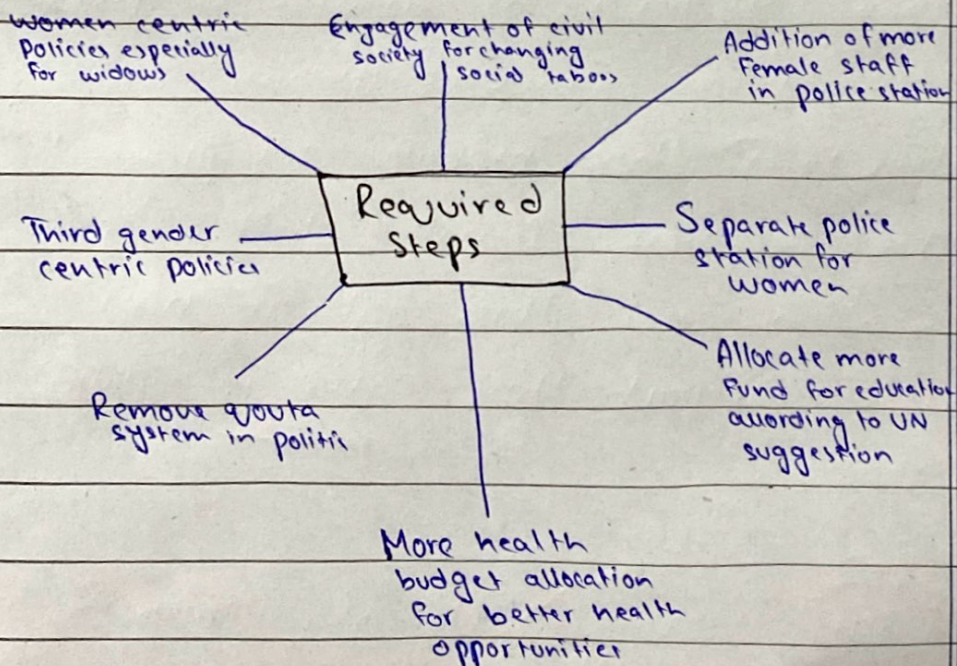 women centric
policies especially
for widows
Engagement of civil
society for changing
social taboos
Addition of more
female staff
in police station
Required
Steps
Third gender
centric policies
Separate police
station for
women
Remove qouta
system in politic
Allocate more
Fund for education
according to UN
suggestion
More health
budget allocation
for better health
opportunities